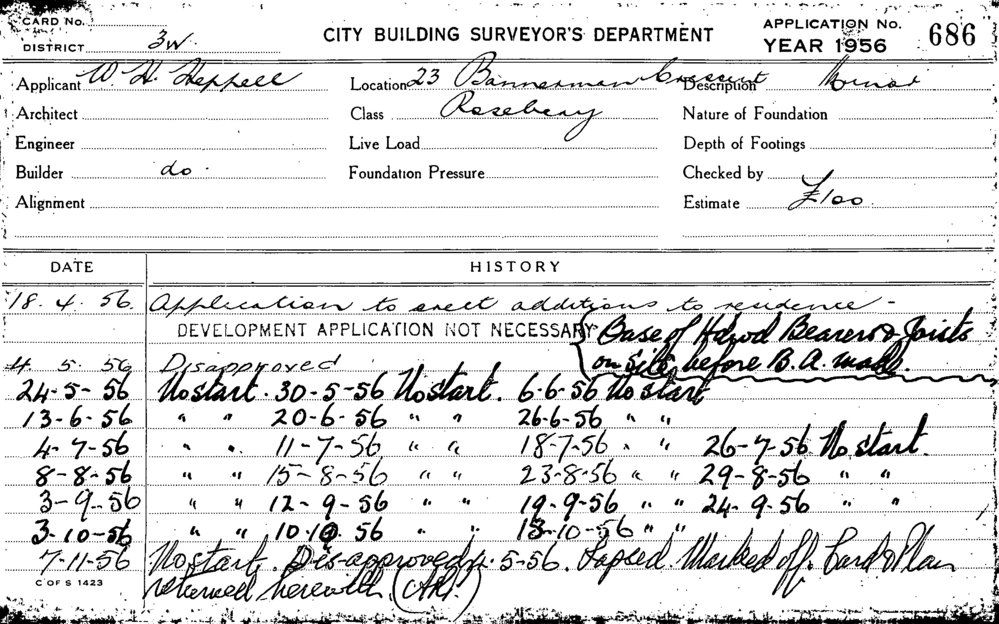 CARD No.
DISTRICT 3W.
CITY BUILDING SURVEYOR'S DEPARTMENT
APPLICATION No. 686
YEAR 1956
Applicant W. H. Heppell Location 23 Bannerman Crescent Description Minor
Architect Class Rosebery Nature of Foundation
Engineer Live Load Depth of Footings
Builder do. Foundation Pressure Checked by
Alignment Estimate £100
DATE HISTORY
18. 4. 56. Application to erect additions to residence -
DEVELOPMENT APPLICATION NOT NECESSARY
Base of Hdwd Bearers & Joists
on site before B.A. made.
4. 5. 56 Disapproved
24-5-56 No start. 30-5-56 No start. 6-6-56 No start
13-6-56 " " 20-6-56 " " 26-6-56 " "
4-7-56 " " 11-7-56 " " 18-7-56 " " 26-7-56 No start.
8-8-56 " " 15-8-56 " " 23-8-56 " " 29-8-56 " "
3-9-56 " " 12-9-56 " " 19-9-56 " " 24-9-56 " "
3-10-56 " " 10-10-56 " " 18-10-56 " "
7-11-56 No start. Dis-approved 4-5-56. Lapsed. Marked off. Card & Plan
returned herewith.
C OF S 1423